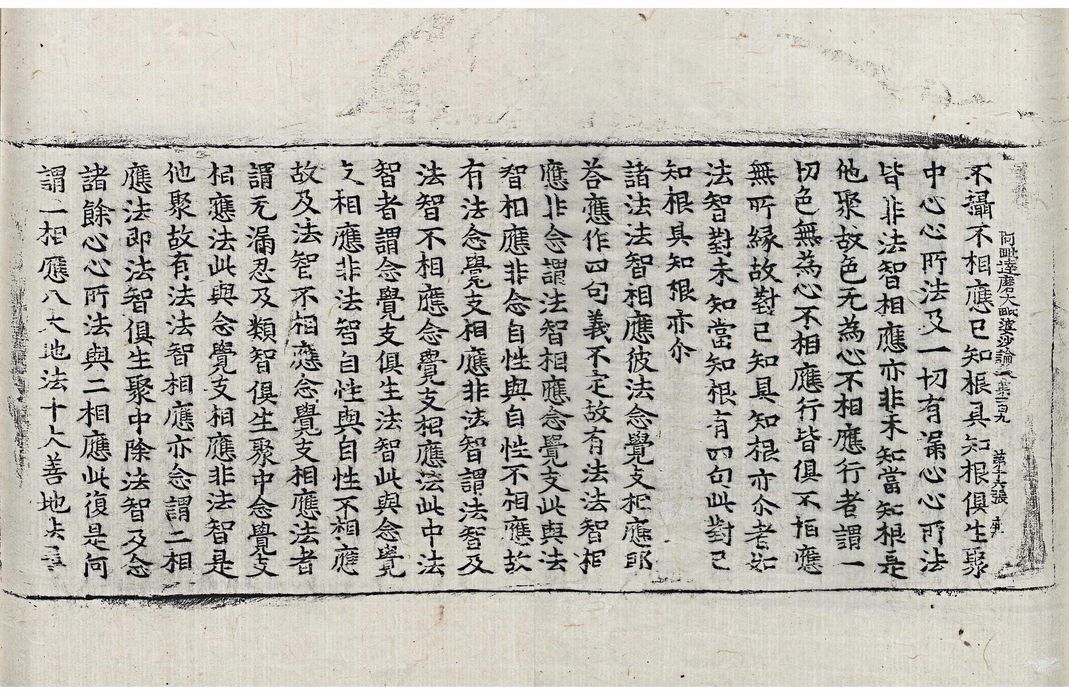 阿毗達磨大毗婆沙論 第十六張
不攝不相應已知根具知根俱生聚
中心心所法及一切有漏心心所法
皆非法智相應亦非未知當知根是
他聚故色无為心不相應行者謂一
切色無為心不相應行皆俱不相應
無所緣故對已知具知根亦尒者如
法智對未知當知根有四句此對已
知根具知根亦尒
諸法法智相應彼法念覺支相應耶
荅應作四句義不定故有法法智相
應非念謂法智相應念覺支此與法
智相應非念自性與自性不相應故
有法念覺支相應非法智謂法智及
法智不相應念覺支相應法此中法
智者謂念覺支俱生法智此與念覺
支相應非法智自性與自性不相應
故及法智不相應念覺支相應法者
謂无漏忍及類智俱生聚中念覺支
相應法此與念覺支相應非法智是
他聚故有法法智相應亦念謂二相
應法即法智俱生聚中除法智及念
諸餘心心所法與二相應此復是何
謂二相應八大地法十大善地法尋